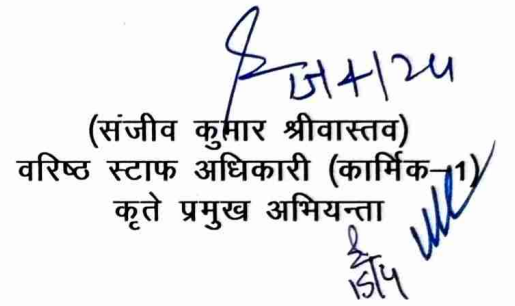 15/4/24
(संजीव कुमार श्रीवास्तव)
वरिष्ठ स्टाफ अधिकारी (कार्मिक-1)
कृते प्रमुख अभियन्ता
15/4